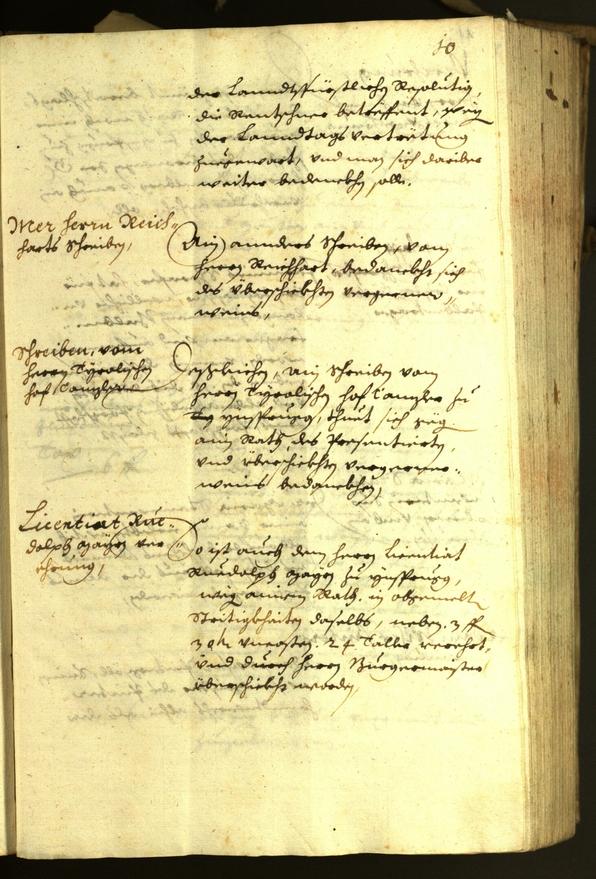 10
der Lanndtsfürstlichen Resolution,
die Rentschner betreffent, weg
der Lanndtags vertrettung
zuegewart, und man sich darüber
weiter bedenckhen solle.
Mer herrn Reich-
harts Schreiben,
Ain annders Schreiben, vom
herrn Reichhart, bedanckht sich
des überschickhten
weins,
Schreiben, vom
herrn Tyrolischen
hof Canzler
Desgleichen, ain Schreiben vom
herrn Tyrolischen hof Canzler zu
Ynsprugg, thuet sich geg.
ain Rath, des Presentierten,
und überschickhten
weins bedanckhen,
Licentiat Rue-
dolph ver-
ehrung,
So ist auch dem herrn Licentiat
Ruedolph zu Ynsprugg,
Rath. in
Stritigkheiten daselbs, neben. 3 fl
24 Taller verehrt,
und durch herrn Burgermaister
überschickht worden,